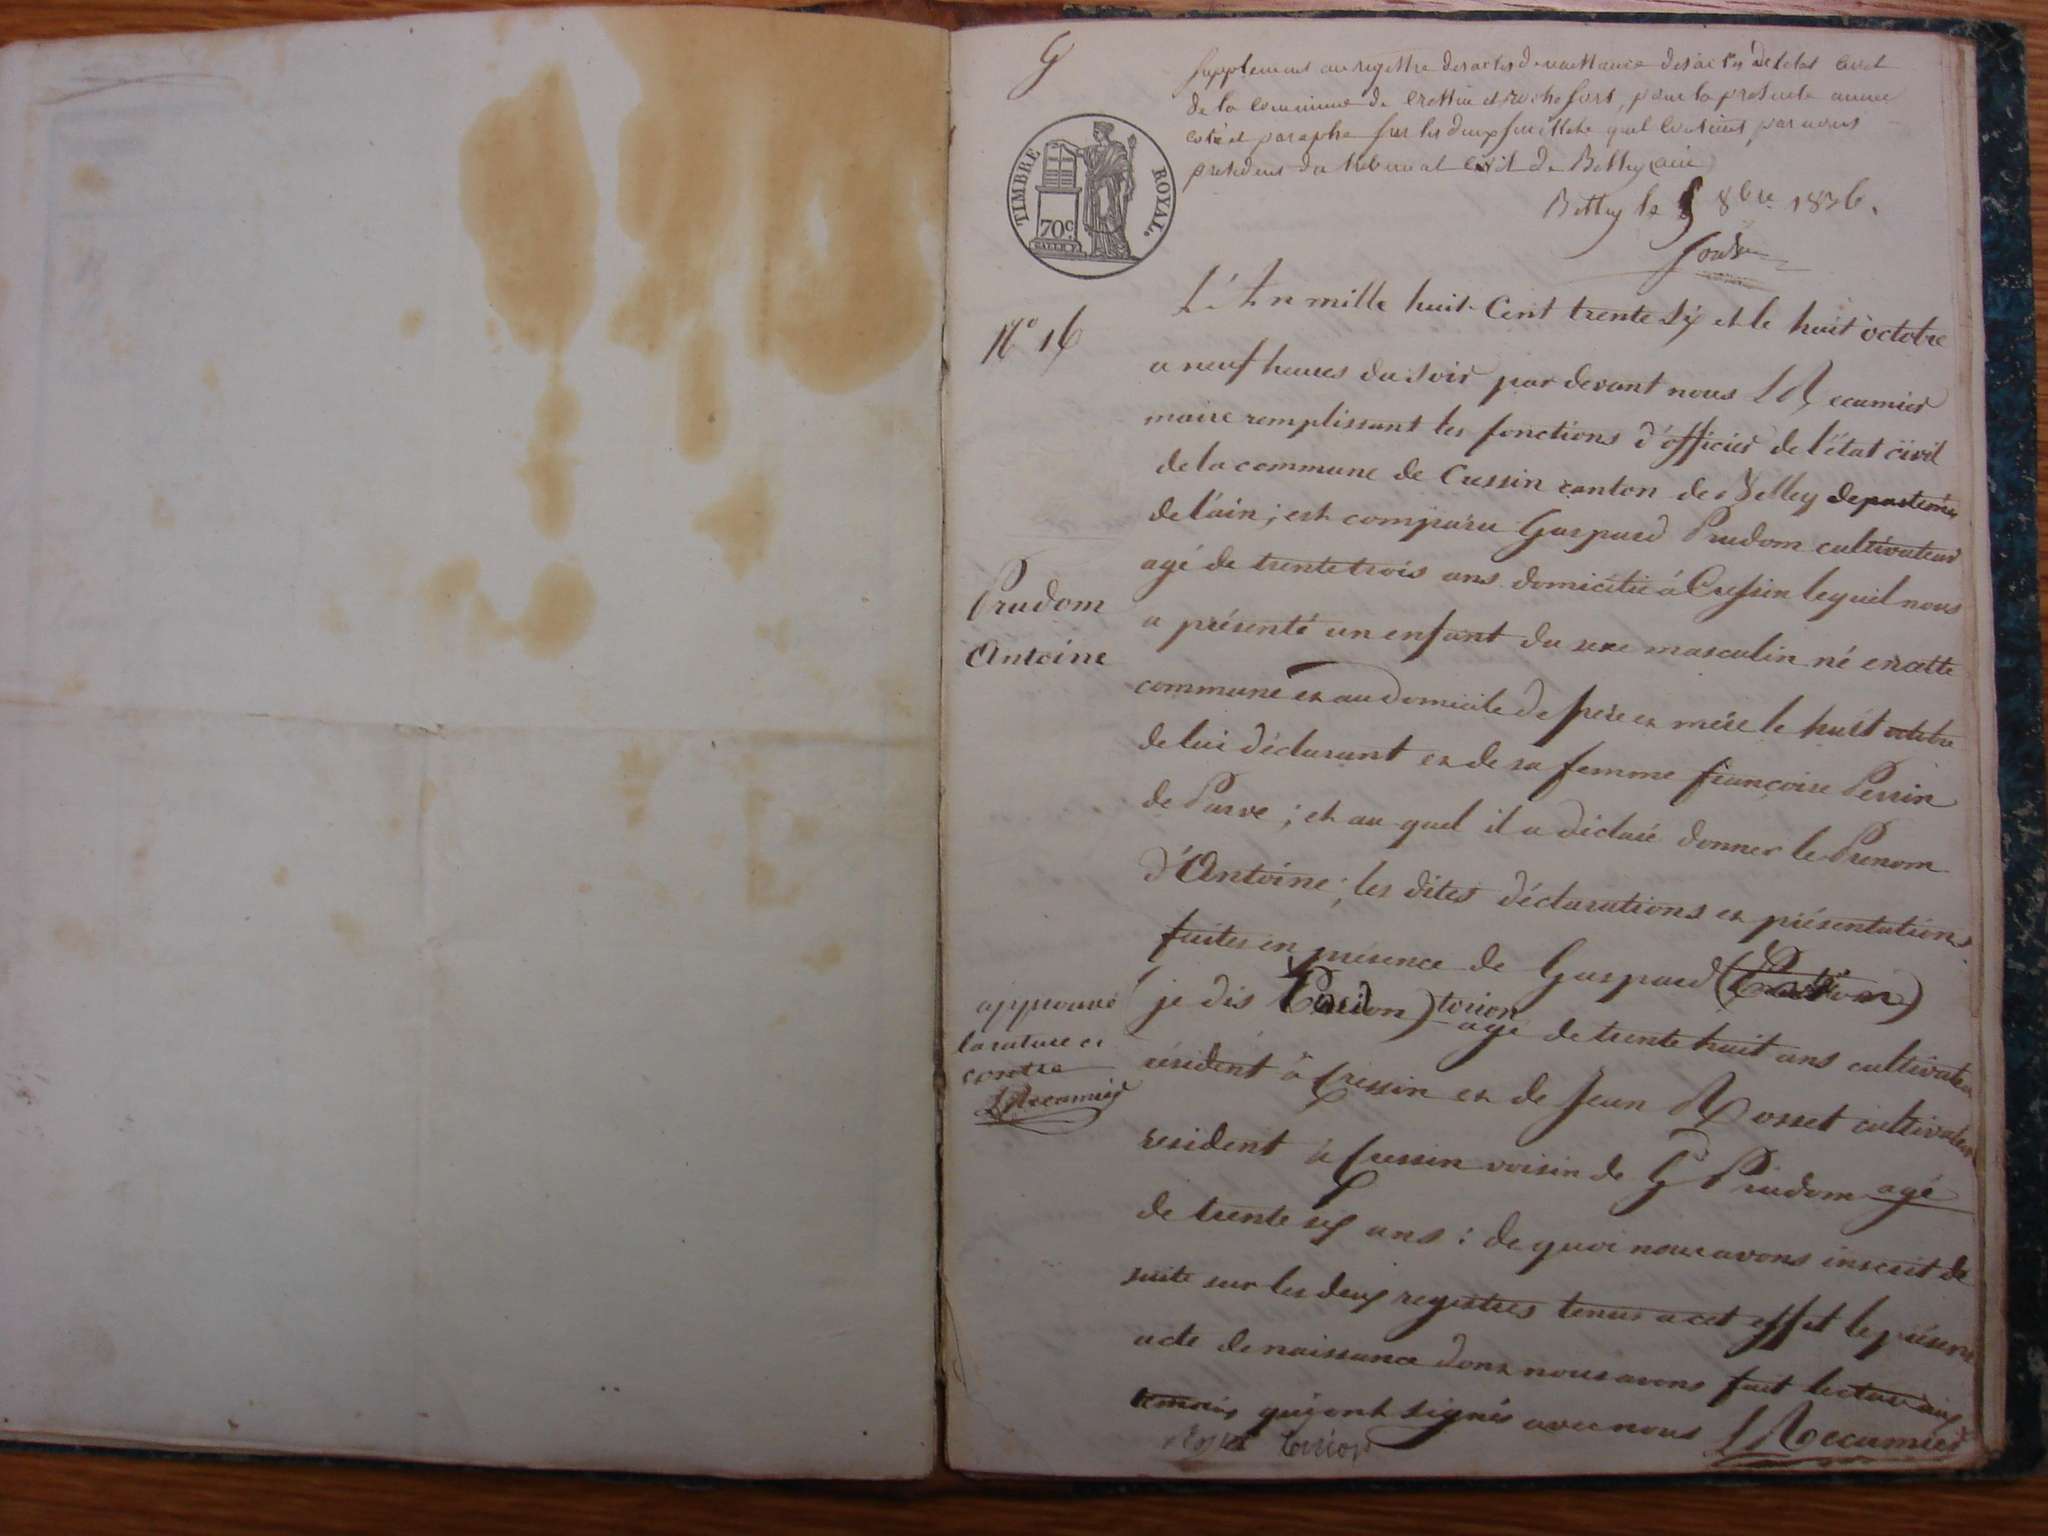 G
Supplement au registre des actes de naissance des actes de l'etat civil
de la commune de Cressin et rochefort, pour la presente annee
coté et paraphé sur les deux feuillets qu'il contient, par nous
president du tribunal civil de Belley (ain)
Belley le 5 8bre 1836.
TIMBRE ROYAL.
70c.
L'An mille huit-Cent trente six et le huit octobre
N° 16
a neuf heures du soir par devant nous L Recumier
maire remplissant les fonctions d'officier de l'état civil
de la commune de Cressin canton de Belley departemen
de l'ain; est comparu Gaspard Prudom cultivateur
agé de trente trois ans domicilié à Cressin lequel nous
Prudom
Antoine
a présenté un enfant du sexe masculin né en cette
commune et au domicile de pere et mére le huit octobre
de lui déclarant et de sa femme françoise Perrin
de Parve; et au quel il a déclaré donner le Prenom
d'Antoine; les dites déclarations et présentations
faites en présence de Gaspard (
approuvé
la rature ci
contre
LRecumier
(je dis ) torion agé de trente huit ans cultivateur
résident à Cressin et de Jean Rosset cultivateur
resident à Cressin voisin de Gd Prudom agé
de trente six ans : de quoi nous avons inscrit de
suite sur les deux registres tenus a cet effet le présent
acte de naissance dont nous avons fait lecture aux
temoins qui ont signés avec nous L Recumier
torion